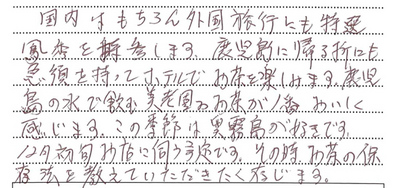 国内はもちろん外国旅行にも特選
風香を持参します。鹿児島に帰る折にも
急須を持ってホテルでお茶を楽しみます。鹿児
島の水で飲む美老園のお茶が1番おいしく
感じます。この季節は黒霧島が好きです。
12月初旬お店に伺う予定です。その時お茶の保
存法を教えていただきたく存じます。